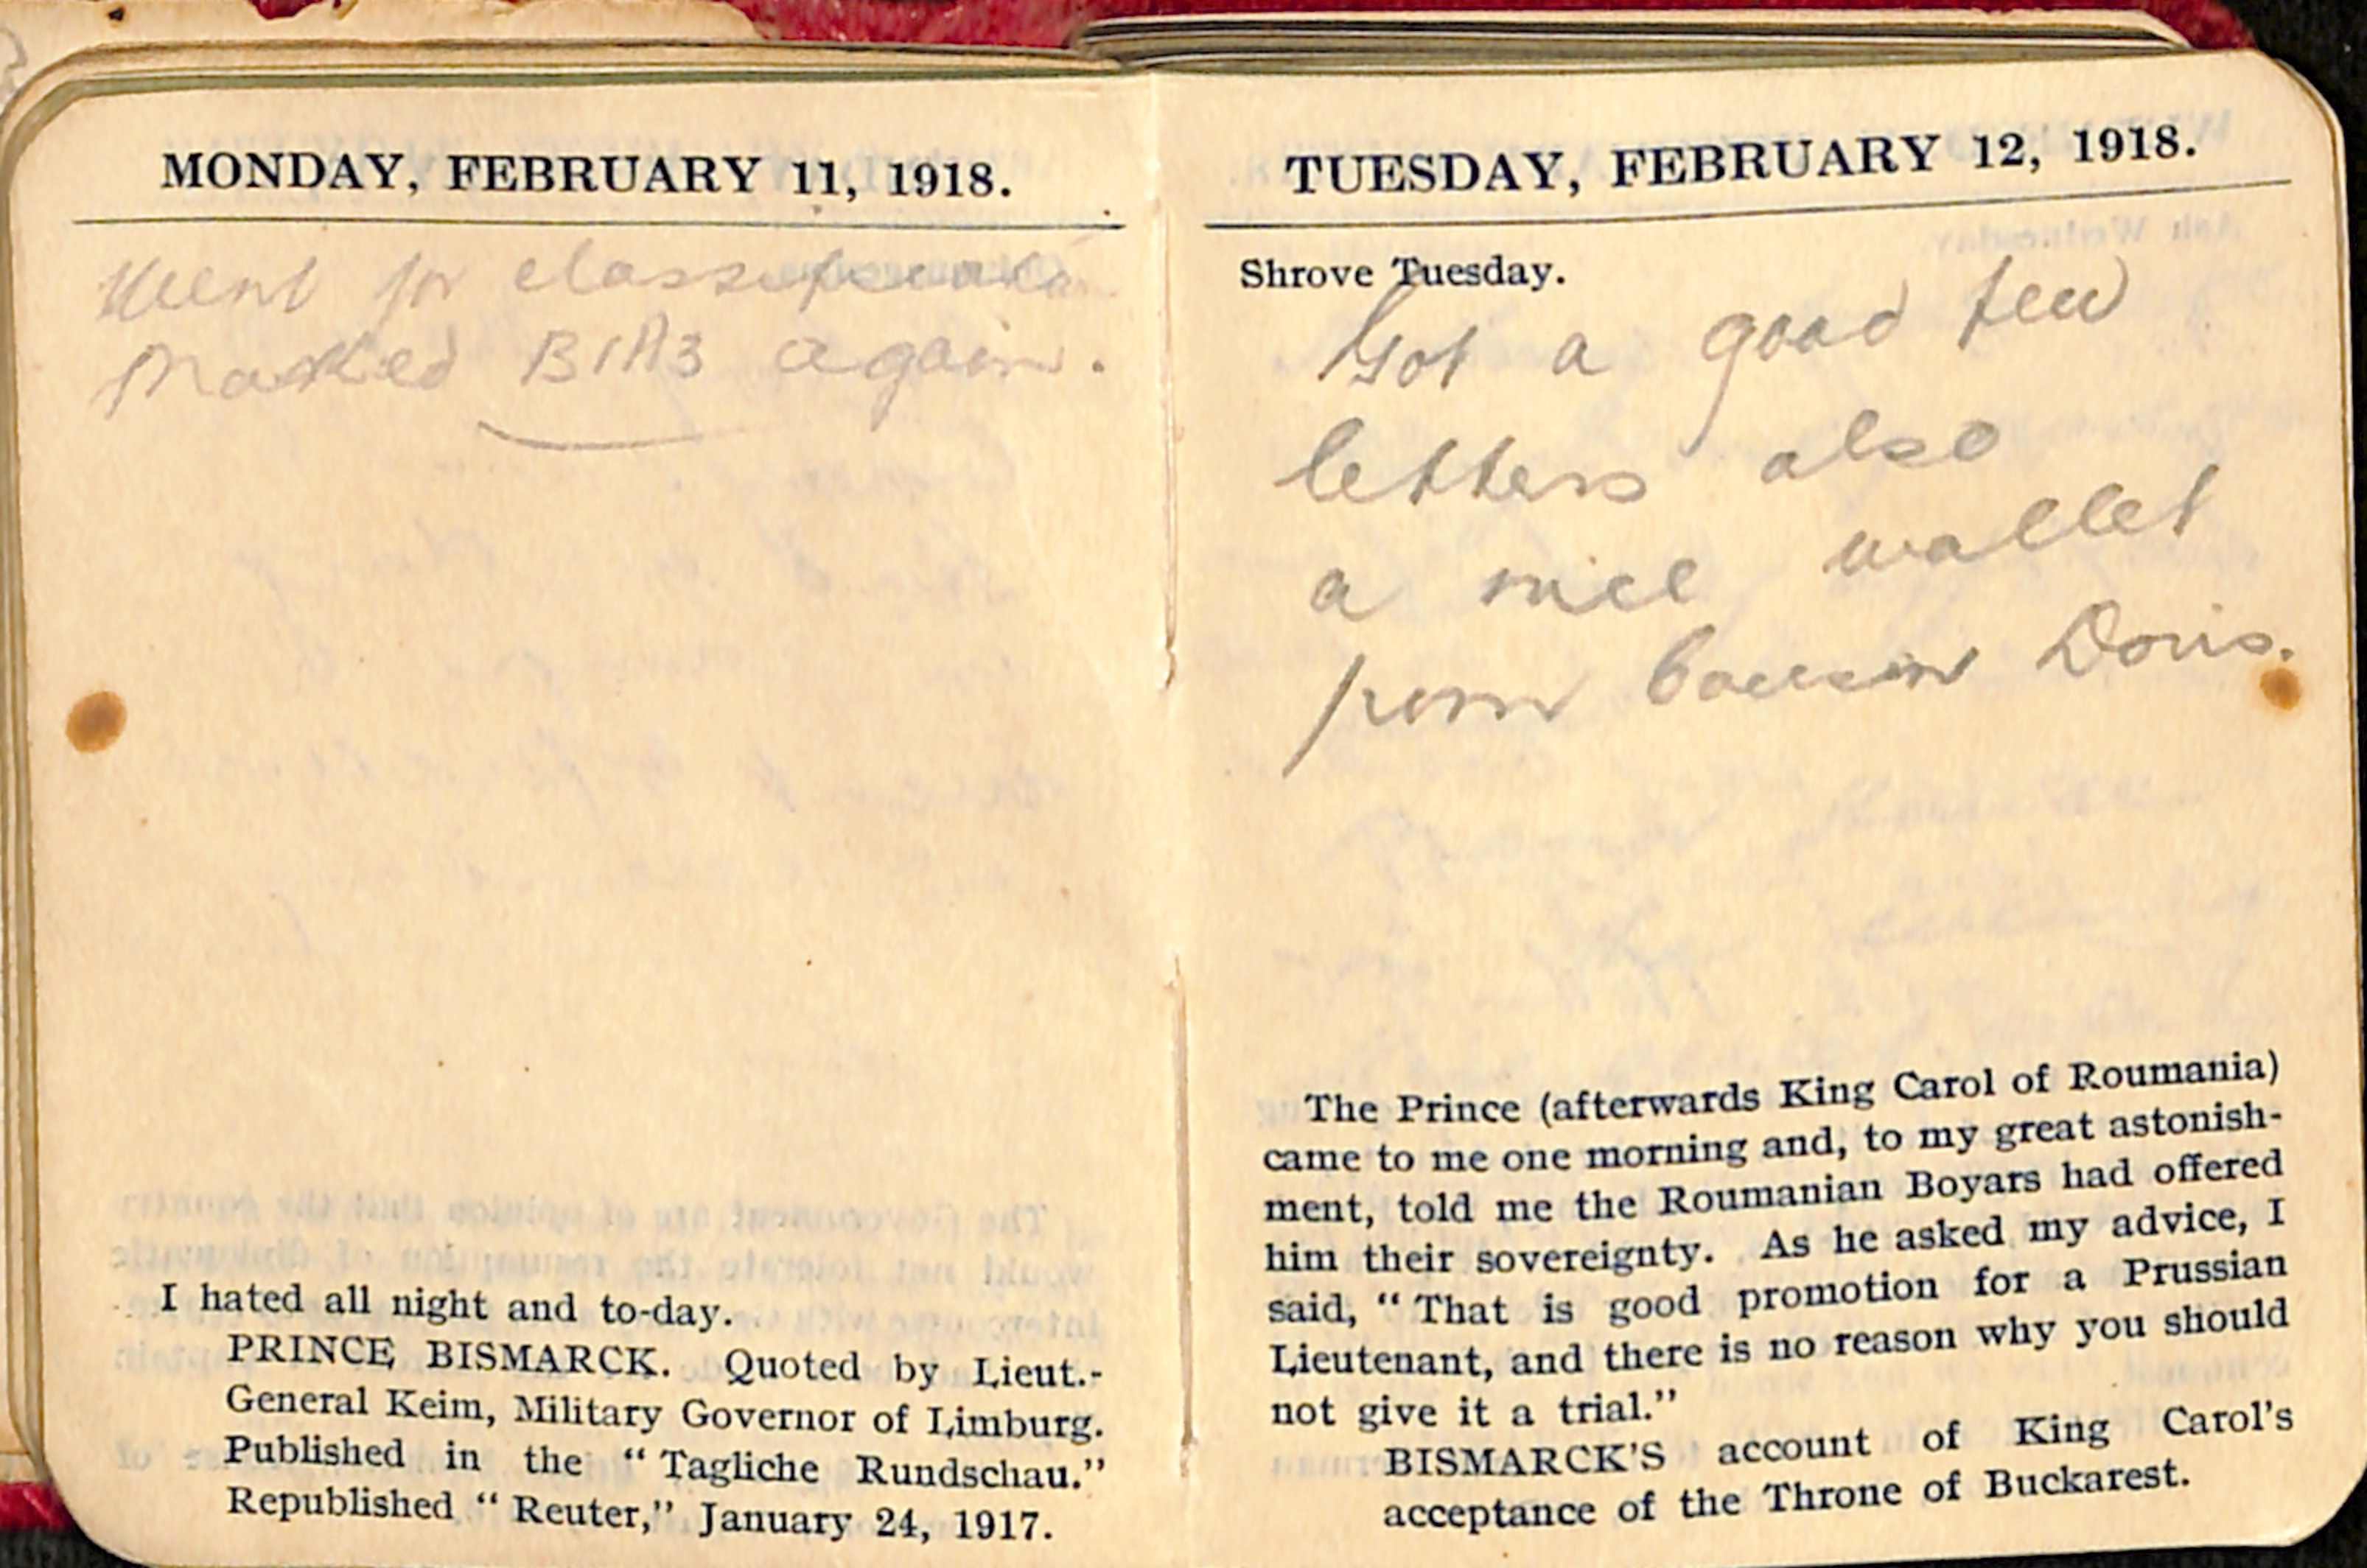 MONDAY, FEBRUARY 11, 1918.
Went for
Marked B1A3 again.
I hated all night and to-day.
PRINCE BISMARCK. Quoted by Lieut.-
General Keim, Military Governor of Limburg.
Published in the “Tagliche Rundschau.”
Republished “Reuter,” January 24, 1917.
TUESDAY, FEBRUARY 12, 1918.
Shrove Tuesday.
Got a good few
letters also
a nice wallet
from Cousin Doris.
The Prince (afterwards King Carol of Roumania)
came to me one morning and, to my great astonish-
ment, told me the Roumanian Boyars had offered
him their sovereignty. As he asked my advice, I
said, “That is good promotion for a Prussian
Lieutenant, and there is no reason why you should
not give it a trial.”
BISMARCK'S account of King Carol's
acceptance of the Throne of Buckarest.